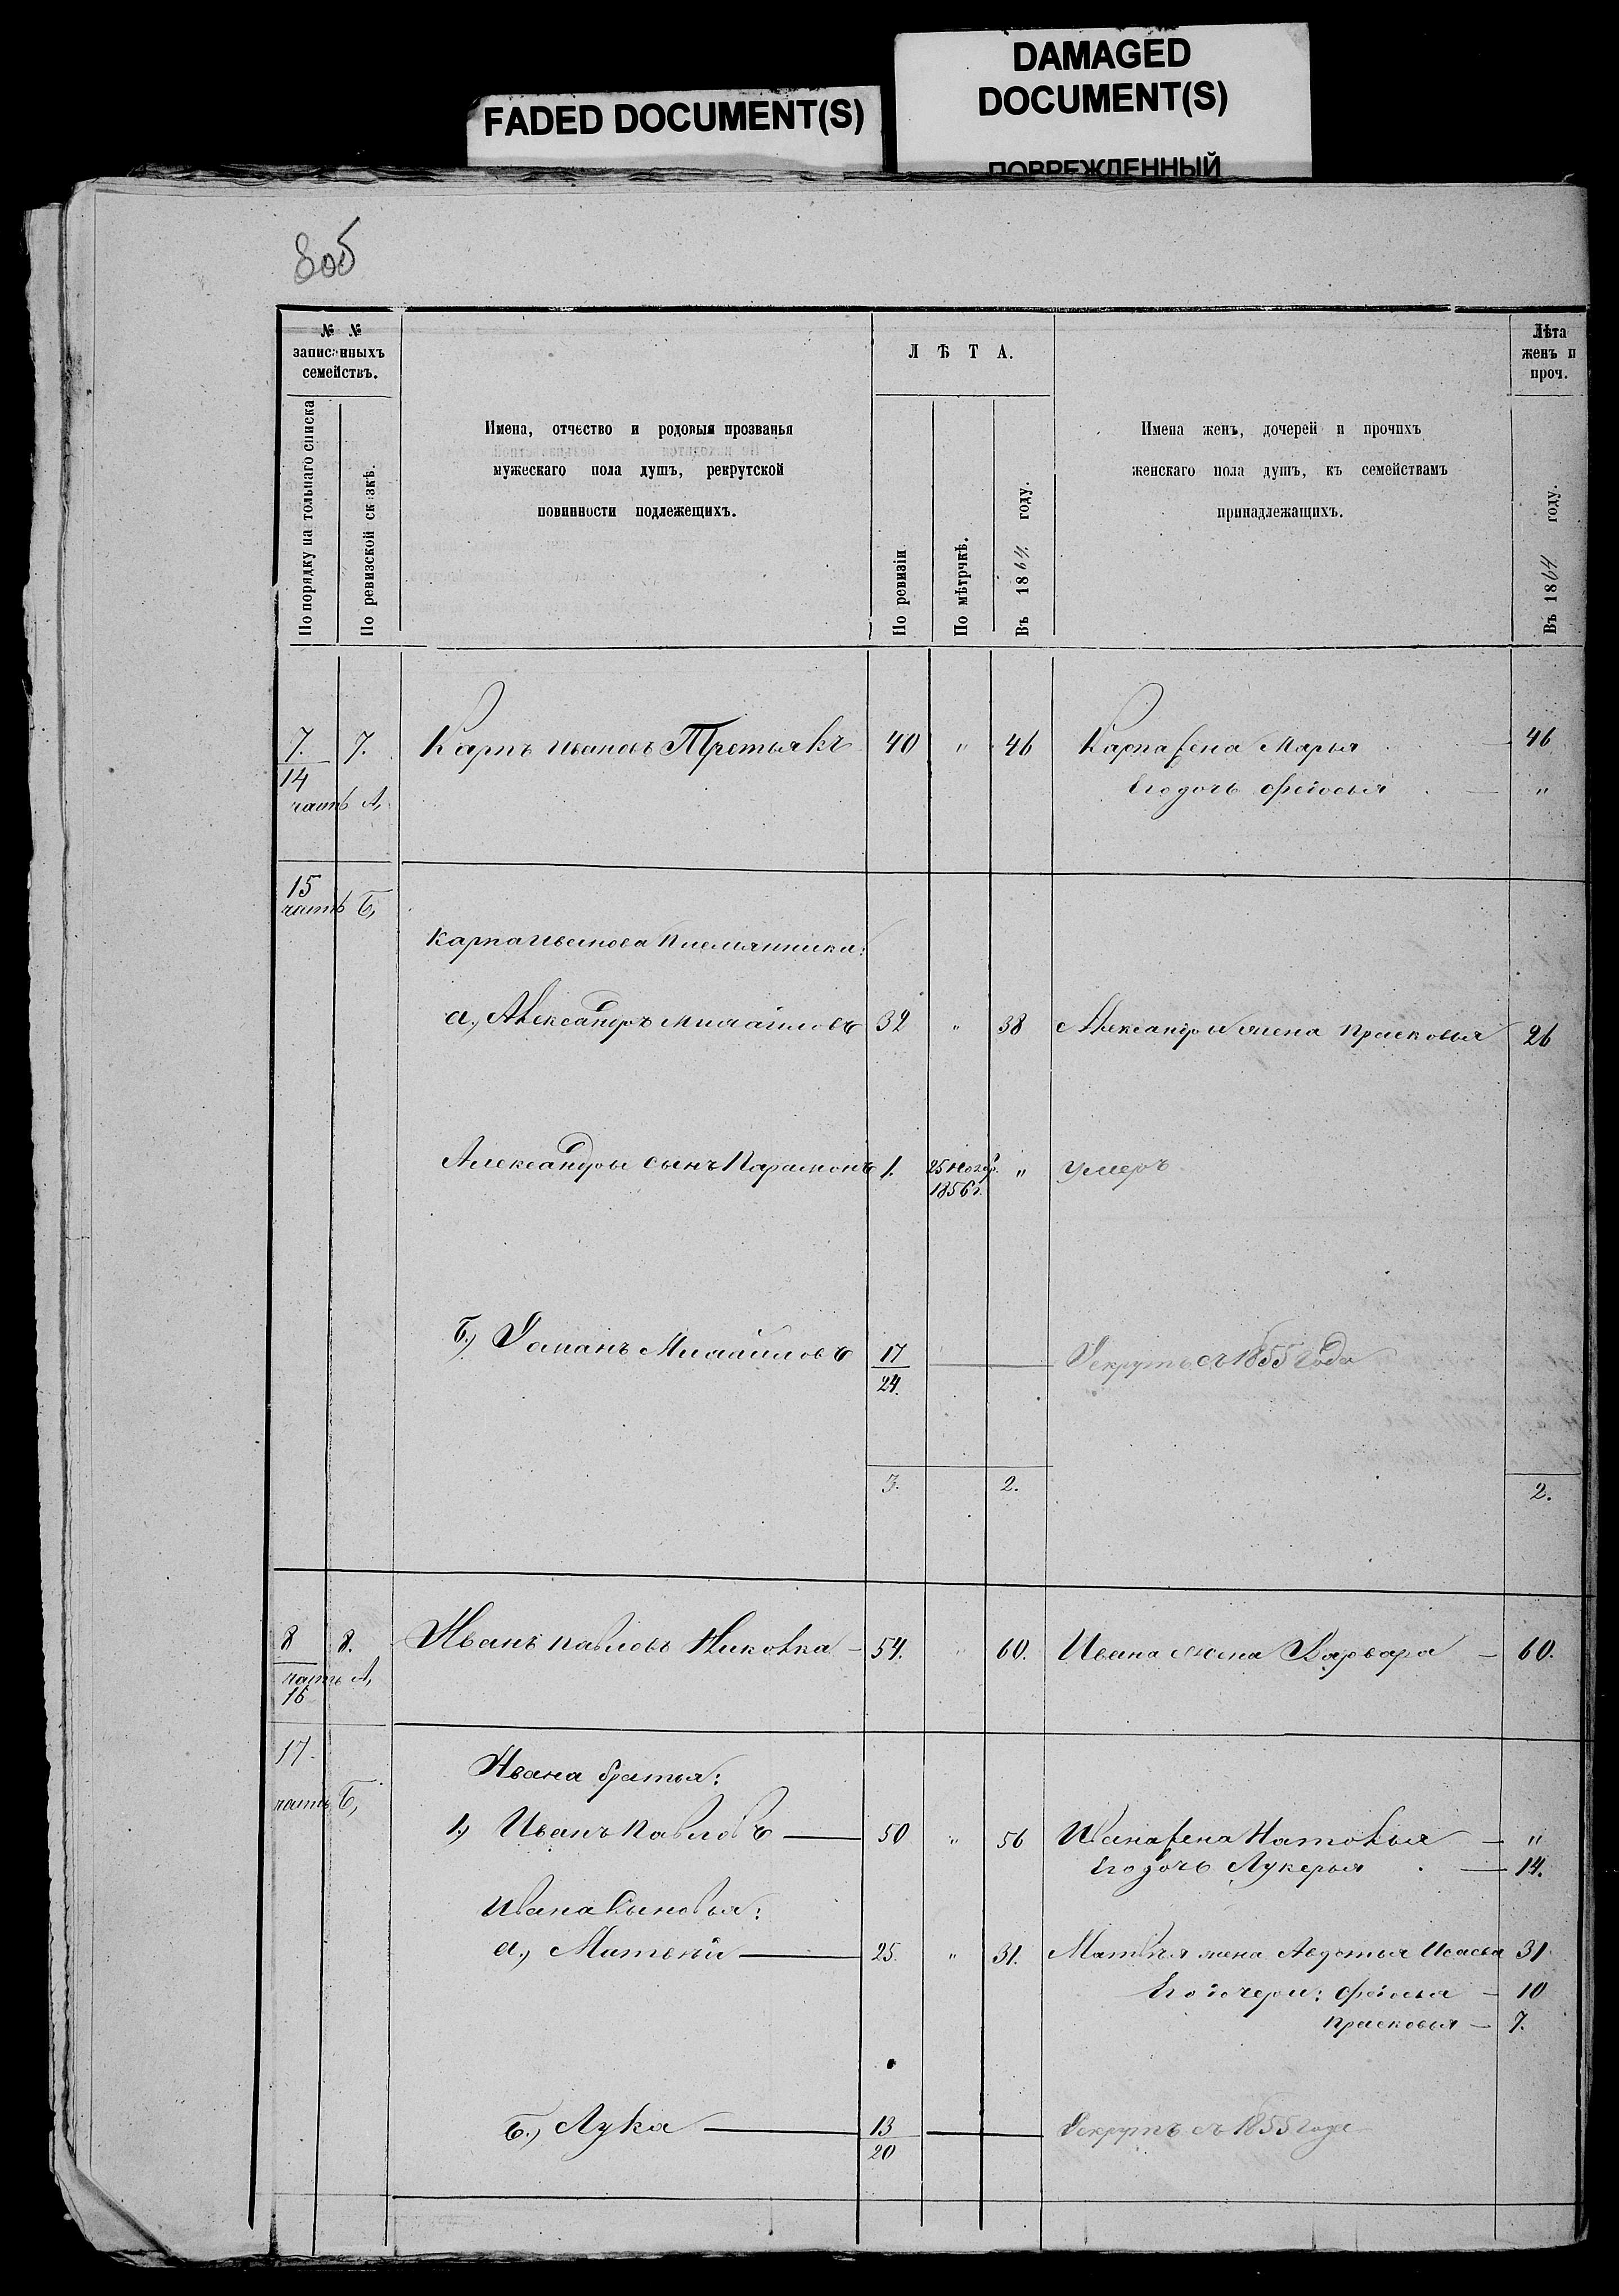 FADED DOCUMENT(S)
DAMAGED
DOCUMENT(S)
ПОВРЕЖДЕННЫЙ
№ №
записанныхъ
семействъ.
По порядку на тольнаго списка
По ревизской сказкѣ.
Имена, отчество и родовыя прозванья
мужескаго пола душъ, рекрутской
повинности подлежещихъ.
Л Ѣ Т А.
По ревизіи
По мѣтрчкѣ.
Въ 1864 году.
Имена женъ, дочерей и прочихъ
женскаго пола душъ, къ семействамъ
принадлежащихъ.
Лѣта
женъ и
проч.
Въ 1864 году.
7. 7. Карпъ Ивановъ Третьякъ 40 " 46 Карпа жена Марья 46
14 Его дочь Феодосья "
часть А,
15
часть Б,
Карпа Иванова племянники:
а, Александръ Михайловъ 32 " 38 Александры жена Прасковья 26
Александры сынъ Парамонъ 1. 25 Нояб. " умеръ
1856 г.
Б,) Романъ Михайловъ 17 Рекрутъ съ 1855 года
24.
3. 2. 2.
8 8. Иванъ Павловъ 54. " 60. Ивана жена Варвара 60.
часть А,
16
17.
Ивана братья:
часть Б,
1,) Иванъ Павловъ 50 " 56 Ивана жена "
Его дочь Лукерья 14.
Ивана сыновья:
а,) Матвѣй 25. " 31. Матвѣя жена Авдотья 31.
Его дочери: Феодосья 10
Прасковья 7.
Б,) Лука 13 Рекрутъ съ 1855 года
20